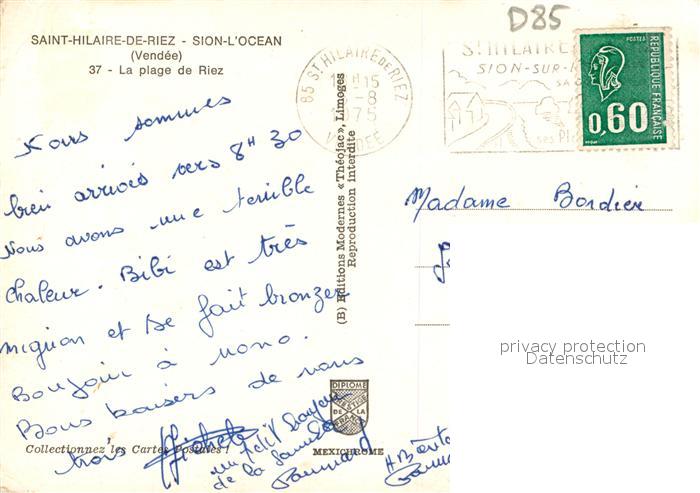 D85
SAINT-HILAIRE-DE-RIEZ - SION-L'OCEAN
(Vendée)
37 - La plage de Riez
85 ST HILAIRE DE RIEZ
15
-8
1975
VENDEE
ST HILAIRE
SION-SUR-
POSTES
REPUBLIQUE FRANÇAISE
0,60
Nous sommes
bien arrivés vers 8H30
Nous avons une terrible
chaleur. Bibi est très
mignon et se fait bronzer
Bonjour à nono.
Bons baisers de nous
trois Michele
un petit
de la
(B) Editions Modernes «Théojac», Limoges
Reproduction interdite
Madame Bordier
privacy protection
Datenschutz
DIPLOME
DE LA
FRANCE
MEXICHROME
Collectionnez les Cartes Postales !